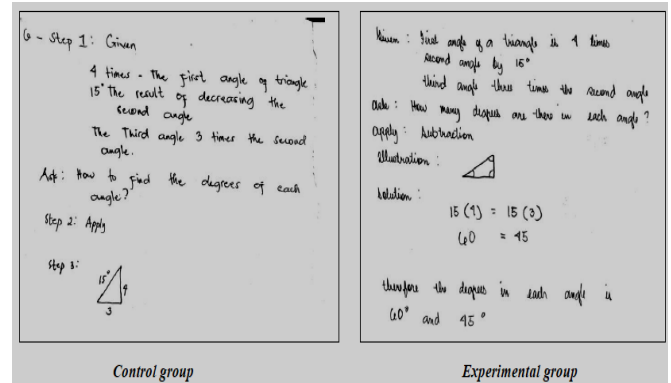 6 - Step 1: Given
4 times - The first angle of triangle
15° The result of decreasing the
second angle
The Third angle 3 times the second
angle.
Ask: How to find the degrees of each
angle?
Step 2: Apply
Step 3:
15°
4
3
Control group
Given: First angle of a triangle is 4 times
second angle by 15°
third angle three times the second angle
ask: How many degrees are there in each angle?
apply: Subtraction
Illustration:
Solution:
15 (4) = 15 (3)
60 = 45
therefore the degrees in each angle is
60° and 45°
Experimental group